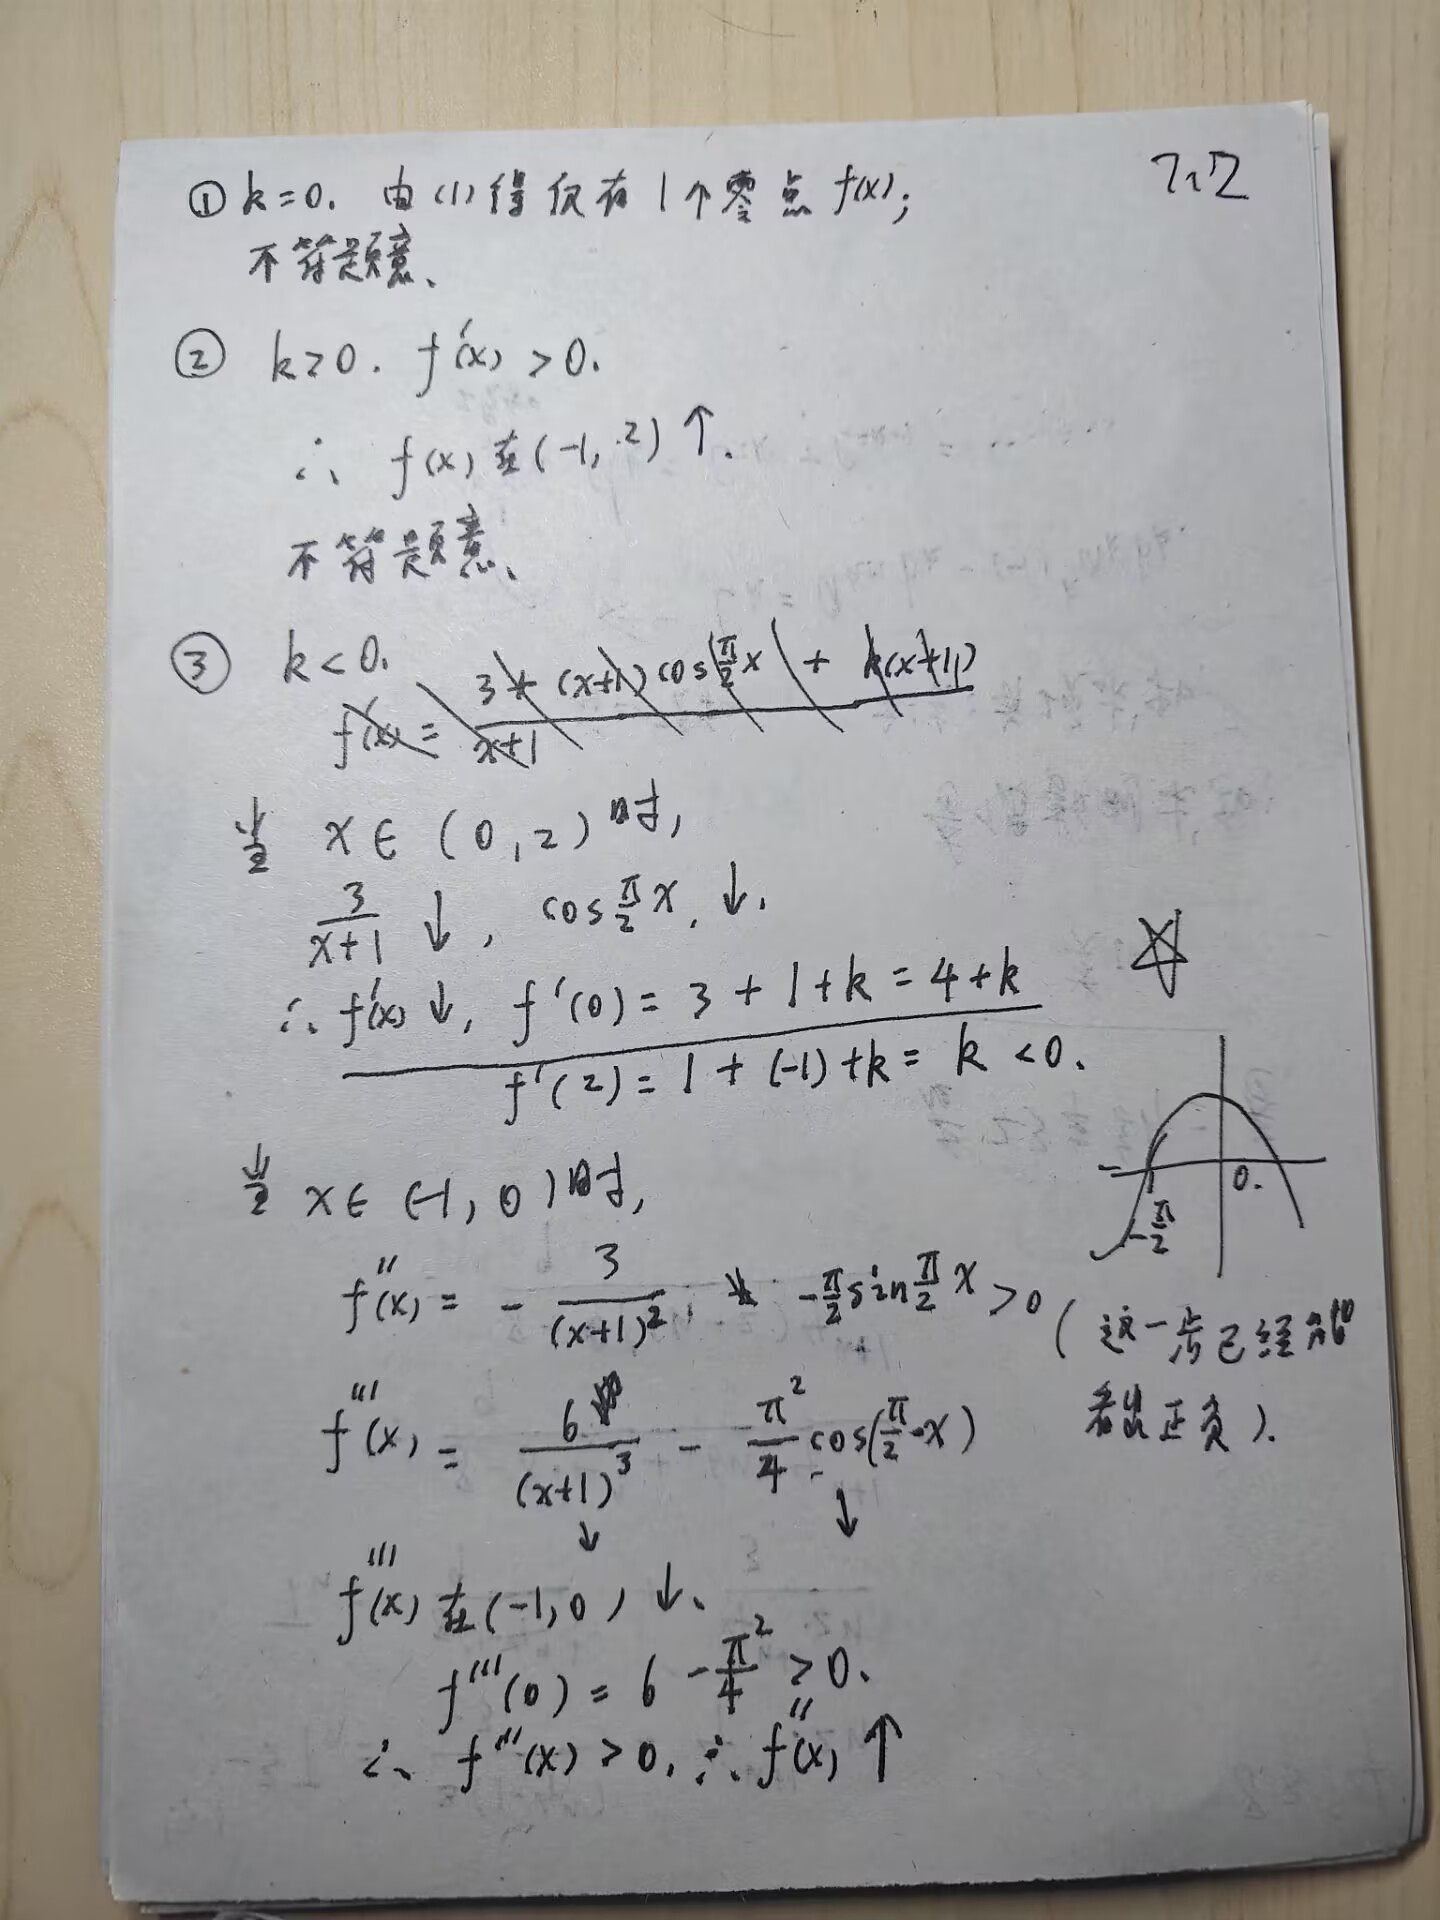 7.2
① k=0. 由(1)得仅有1个零点f(x);
不符题意、
② k>0. f'(x) >0.
∴ f(x)在(-1, 2)↑.
不符题意、
③ k<0.
f'(x) = \frac{3+(x+1)cos\frac{π}{2}x + k(x+1)}{x+1}
当 x∈(0,2)时,
\frac{3}{x+1}↓, cos\frac{π}{2}x, ↓.
∴ f'(x)↓, f'(0)=3+1+k=4+k
f'(2)=1+(-1)+k=k<0.
当 x∈(-1,0)时,
0.
-\frac{π}{2}
f''(x) = -\frac{3}{(x+1)^2}, -\frac{π}{2}sin\frac{π}{2}x>0 (这一步已经能
看出正负).
f'''(x) = \frac{6}{(x+1)^3} - \frac{π^2}{4}cos(\frac{π}{2}·x)
↓ ↓
f'''(x)在(-1,0)↓、
f'''(0)=6-\frac{π^2}{4}>0.
∴ f'''(x)>0, ∴ f''(x)↑